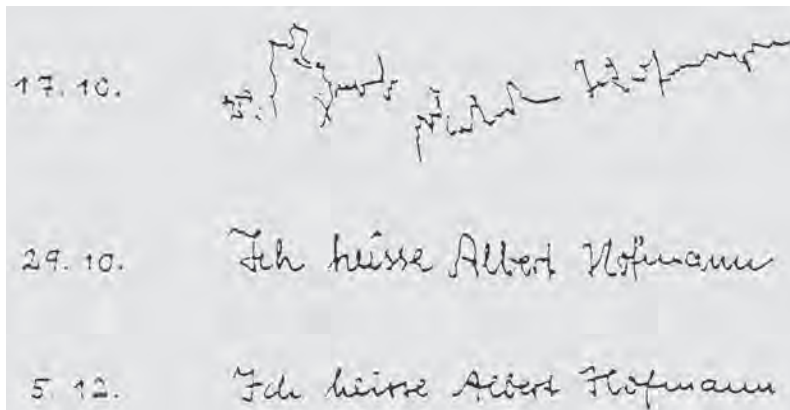 17. 10.
29. 10. Ich heisse Albert Hofmann
5. 12. Ich heisse Albert Hofmann